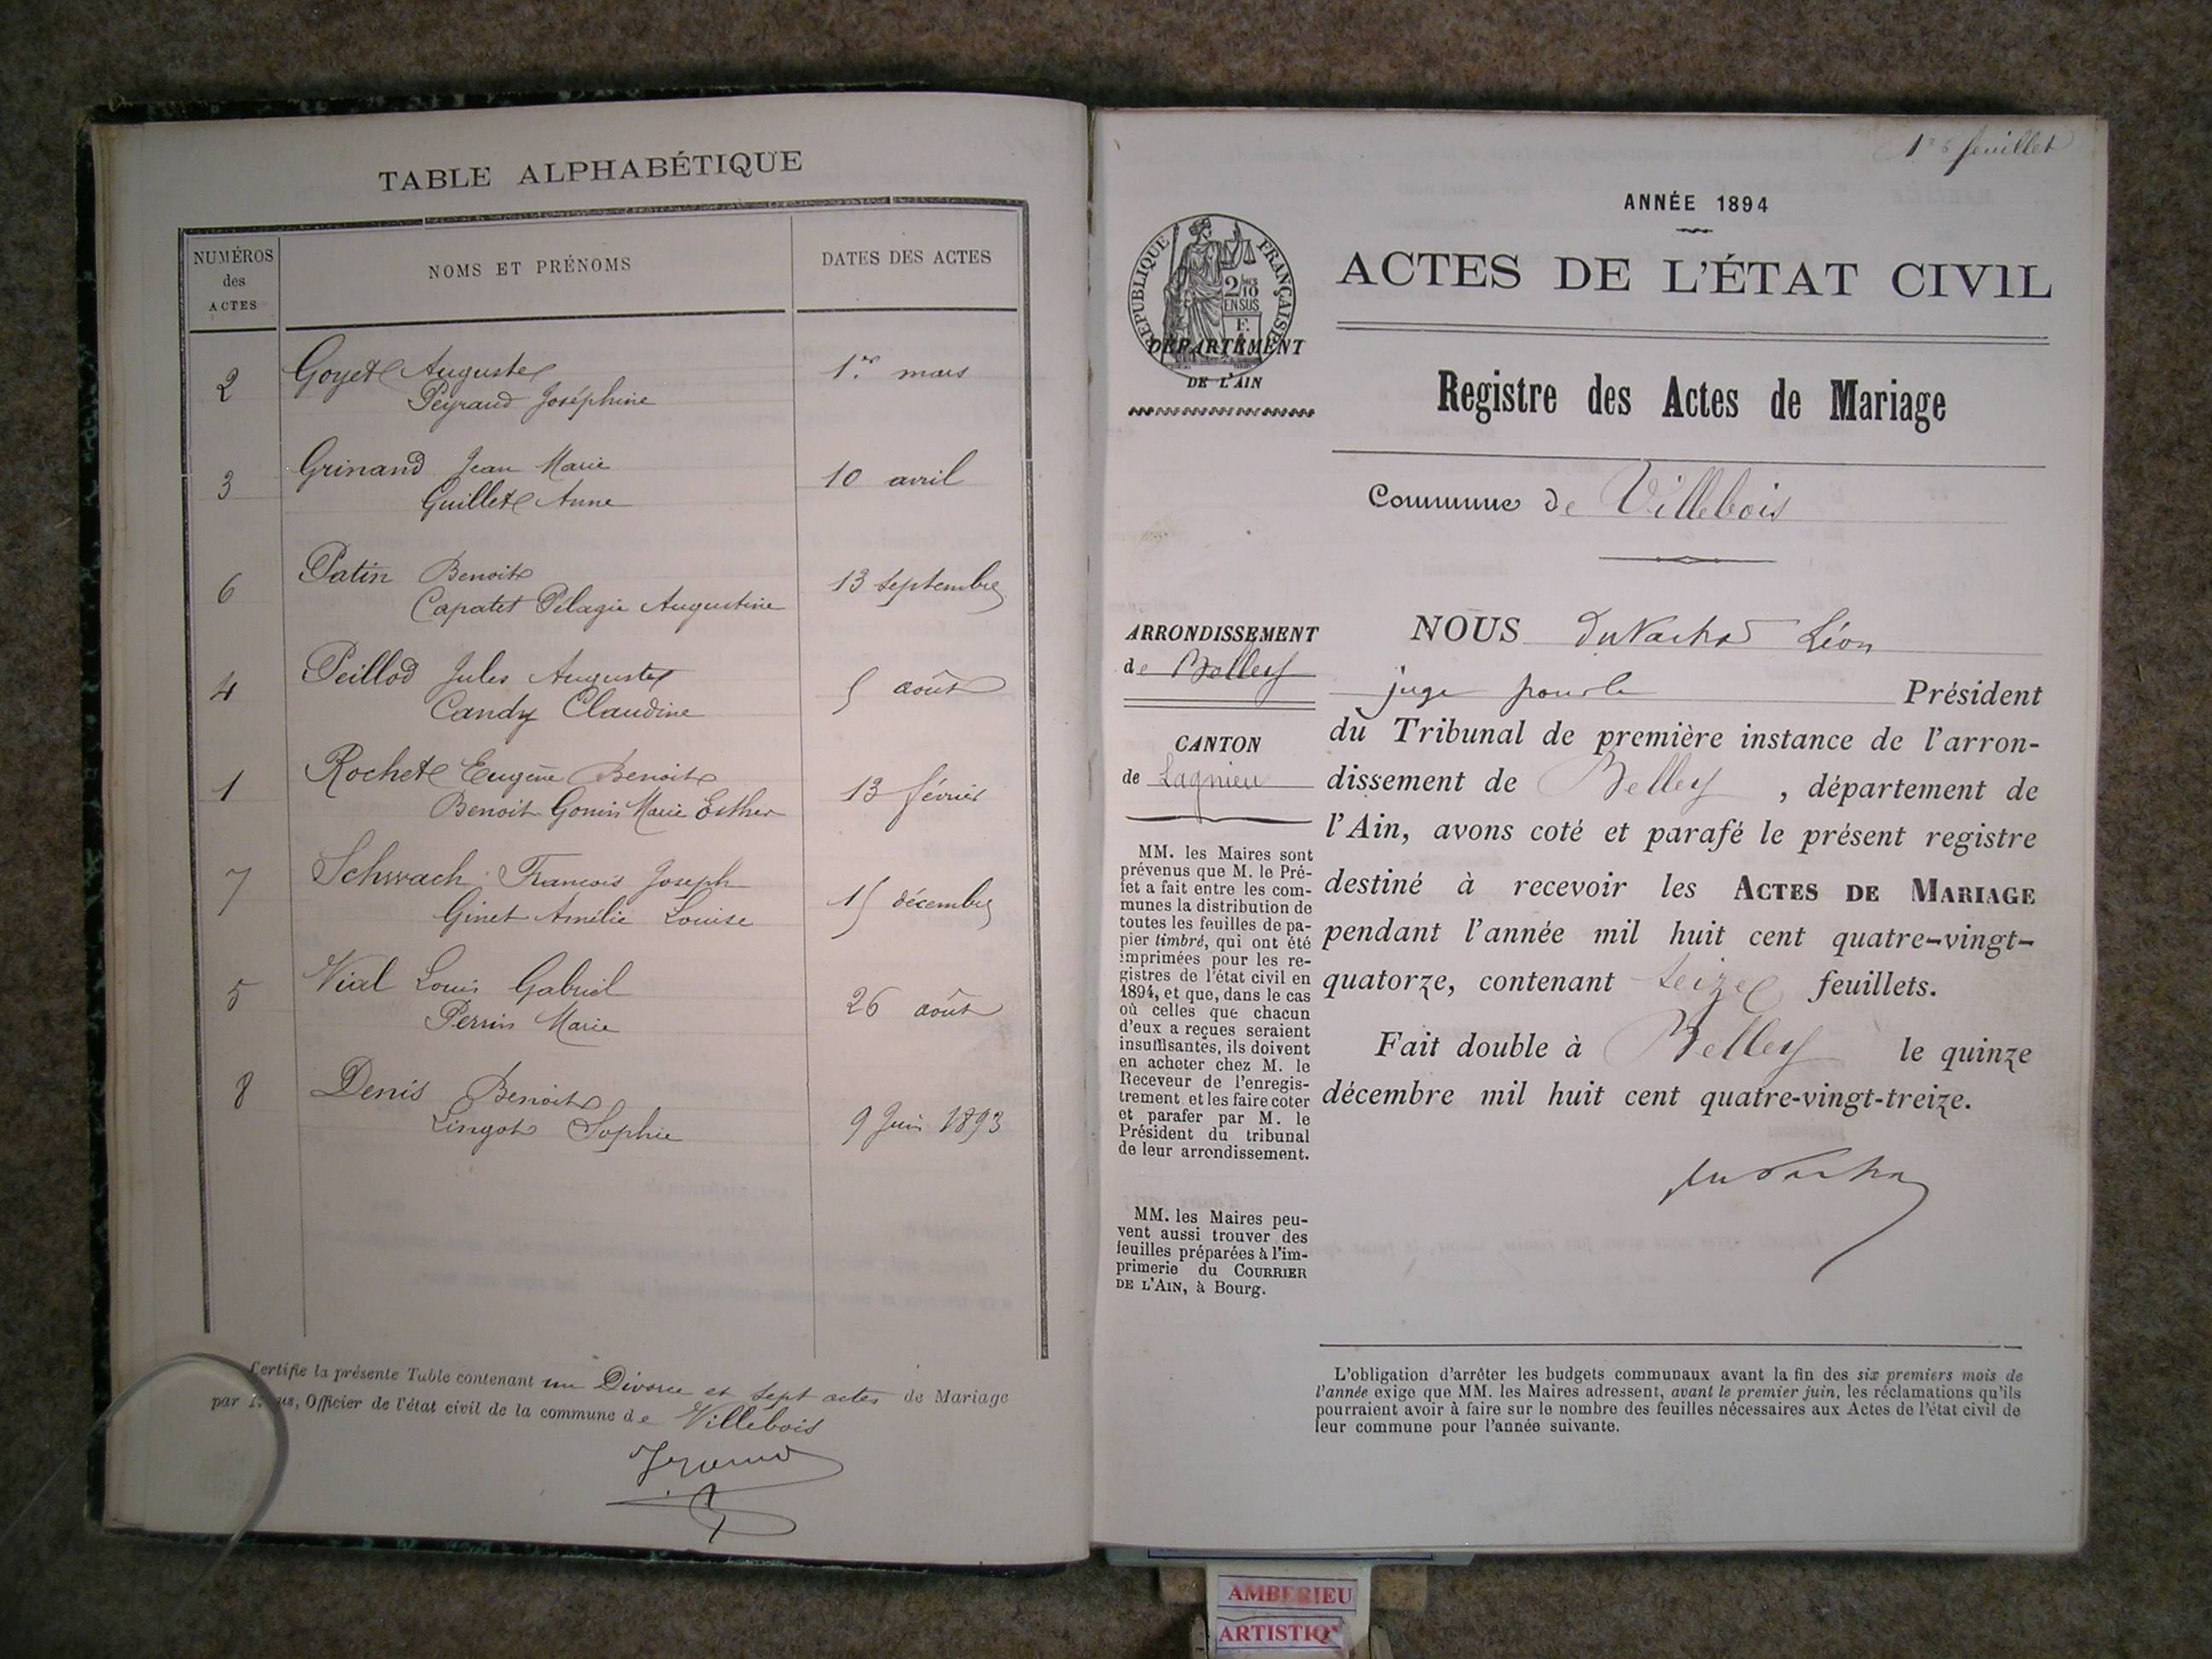 TABLE ALPHABÉTIQUE
NUMÉROS
des
ACTES
NOMS ET PRÉNOMS
DATES DES ACTES
2 Goyet Auguste 1er mars
Peyraud Joséphine
3 Grinand Jean Marie 10 avril
Guillet Anne
6 Patin Benoit 13 septembre
Capatet Pélagie Augustine
4 Peillod Jules Auguste 5 août
Candy Claudine
1 Rochet Eugène Benoit 13 février
Benoit-Gonin Marie Esther
7 Schwach François Joseph 15 décembre
Ginet Amélie Louise
5 Vial Louis Gabriel 26 août
Perrin Marie
8 Denis Benoit
Lingot Sophie 9 Juin 1893
Certifie la présente Table contenant un Divorce et sept actes de Mariage
par Nous, Officier de l'état civil de la commune de Villebois
1er feuillet
ANNÉE 1894
ACTES DE L'ÉTAT CIVIL
RÉPUBLIQUE FRANÇAISE
2/10
EN SUS
DÉPARTEMENT
DE L'AIN
Registre des Actes de Mariage
Commune de Villebois
ARRONDISSEMENT
de Belley
CANTON
de Lagnieu
MM. les Maires sont
prévenus que M. le Pré-
fet a fait entre les com-
munes la distribution de
toutes les feuilles de pa-
pier timbré, qui ont été
imprimées pour les re-
gistres de l'état civil en
1894, et que, dans le cas
où celles que chacun
d'eux a reçues seraient
insuffisantes, ils doivent
en acheter chez M. le
Receveur de l'enregis-
trement et les faire coter
et parafer par M. le
Président du tribunal
de leur arrondissement.
MM. les Maires peu-
vent aussi trouver des
feuilles préparées à l'im-
primerie du COURRIER
DE L'AIN, à Bourg.
NOUS Léon
juge pour le Président
du Tribunal de première instance de l'arron-
dissement de Belley, département de
l'Ain, avons coté et parafé le présent registre
destiné à recevoir les ACTES DE MARIAGE
pendant l'année mil huit cent quatre-vingt-
quatorze, contenant seize feuillets.
Fait double à Belley le quinze
décembre mil huit cent quatre-vingt-treize.
L'obligation d'arrêter les budgets communaux avant la fin des six premiers mois de
l'année exige que MM. les Maires adressent, avant le premier juin, les réclamations qu'ils
pourraient avoir à faire sur le nombre des feuilles nécessaires aux Actes de l'état civil de
leur commune pour l'année suivante.
AMBERIEU
ARTISTIQ